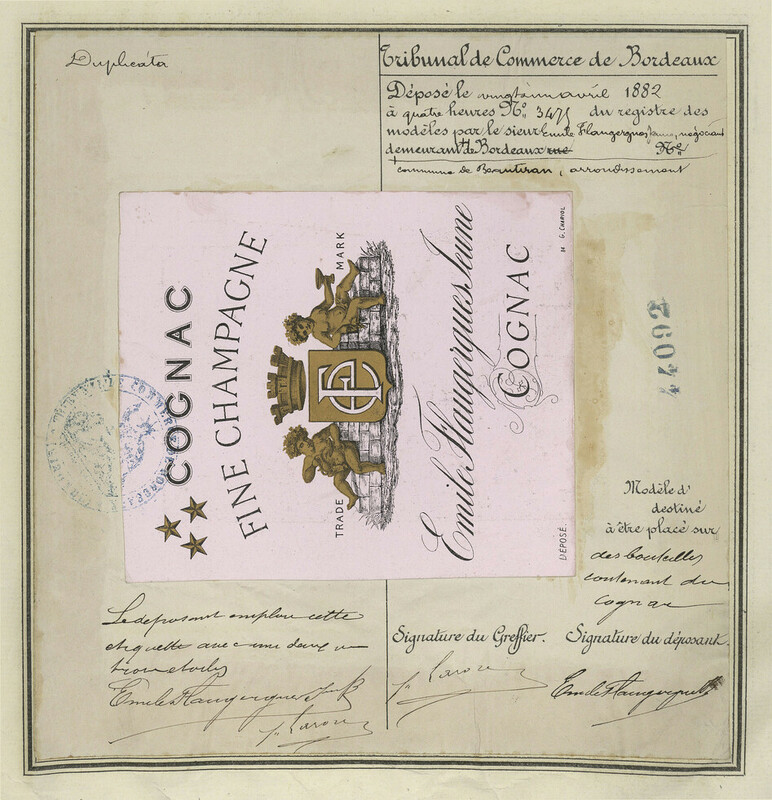 Duplicata
Tribunal de Commerce de Bordeaux
Déposé le vingt un avril 1882
à quatre heures No. 3475 du registre des
modèles par le sieur Emile Flaugergues Jeune, négociant
demeurant de Bordeaux rue No.
commune de Beautiran, arrondissement
COGNAC
FINE CHAMPAGNE
TRADE MARK
Emile Flaugergues Jeune
COGNAC
DÉPOSÉ.
44092
Modèle d'
destiné
à être placé sur
des bouteilles
contenant du
cognac
Le déposant emploie cette
etiquette avec une deux ou
trois etoiles
Emile Flaugergues
Signature du Greffier.
Signature du déposant.
Emile Flaugergues